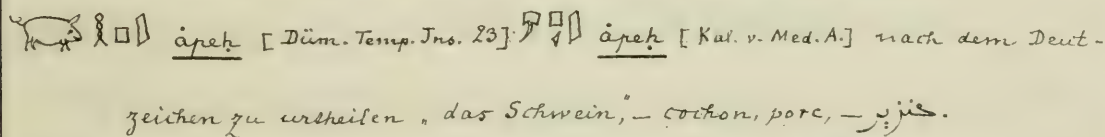 ȧpeḥ [Düm. Temp. Ins. 23] ȧpeḥ [Kal. v. Med. A.] nach dem Deut-
zeichen zu urtheilen „das Schwein," – cochon, porc, – خنزير.